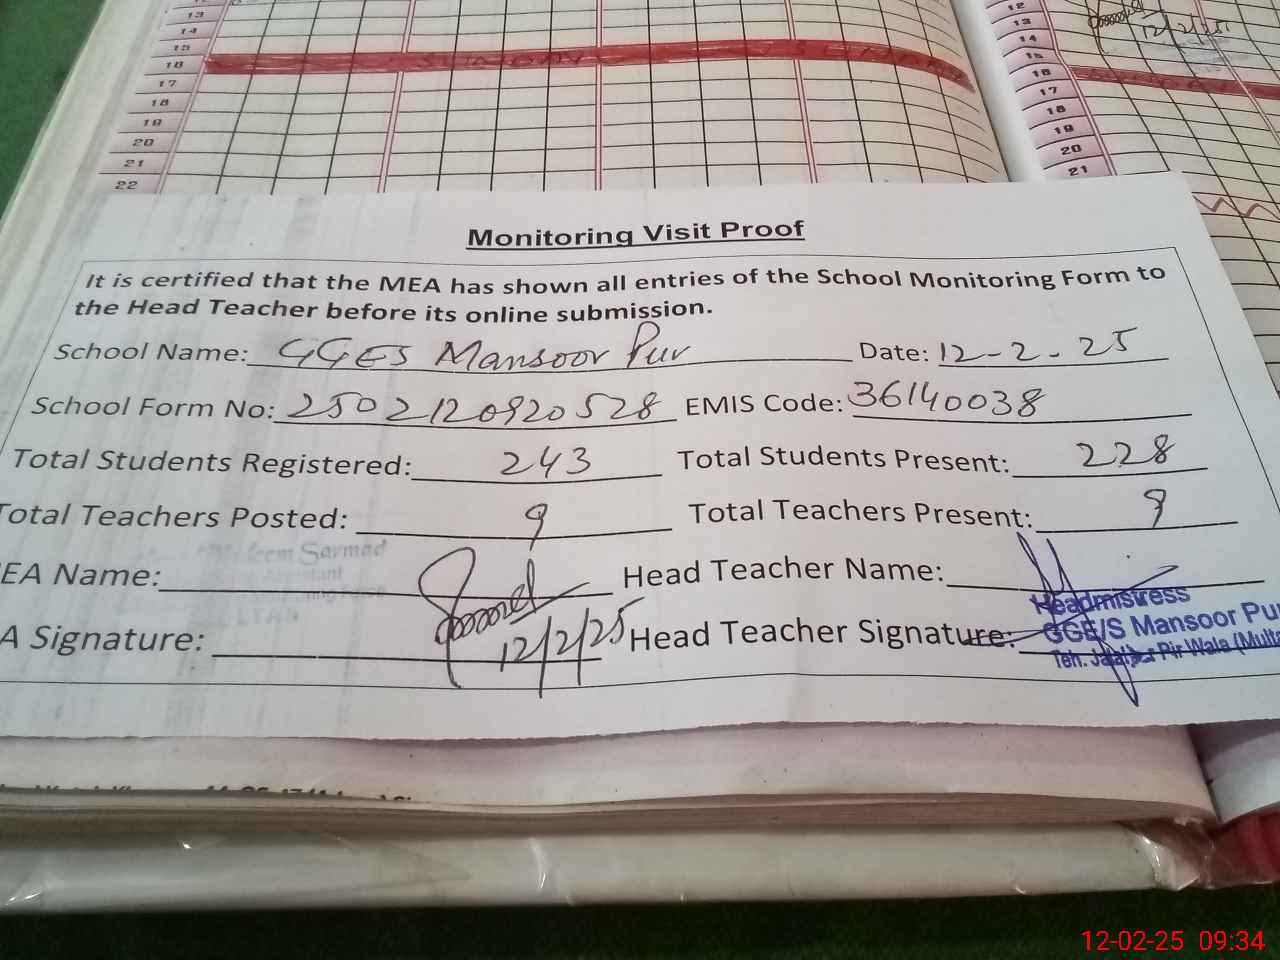 13
14
15
16 SUNDAY SUNDAY
17
18
19
20
21
22
12
13
14
15
16
17
18
19
20
21
12/2/25
Monitoring Visit Proof
It is certified that the MEA has shown all entries of the School Monitoring Form to
the Head Teacher before its online submission.
School Name: GGES Mansoor Pur Date: 12-2-25
School Form No: 2502120920528 EMIS Code: 36140038
Total Students Registered: 243 Total Students Present: 228
Total Teachers Posted: 9 Total Teachers Present: 9
EA Name: Sarmad Head Teacher Name:
A Signature: 12/2/25 Head Teacher Signature:
Headmistress
GGE/S Mansoor Pu
Teh. Jalalpur Pir Wala (Mult
12-02-25 09:34